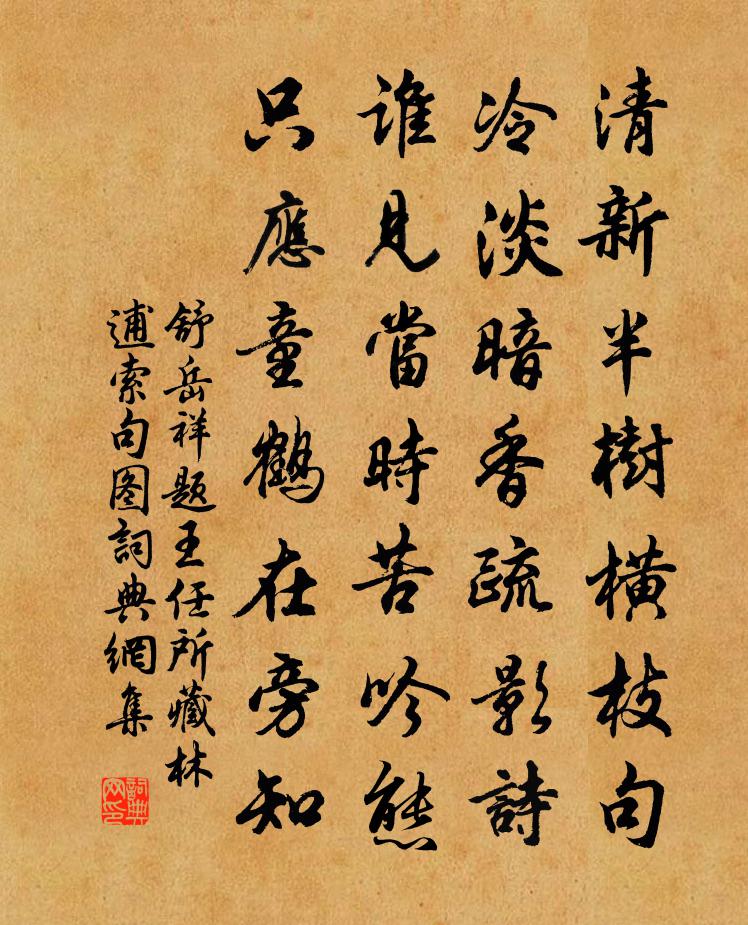 清新半樹橫枝句
冷淡暗香疏影詩
誰見當時苦吟態
只應童鶴在旁知
舒岳祥題王任所藏林
逋索句图詞典網集
詞典网印